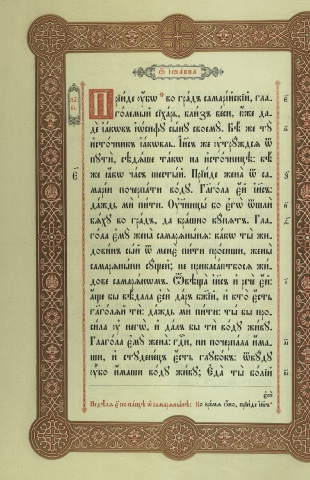 Ѿ іѡа́нна
Прїи́де ᲂу҆̀бо * во гра́дъ самарі́йскїй, гла-
го́лемый сіха́рь, бли́зъ ве́си, ю҆́же да-
дѐ і҆а́кѡвъ і҆ѡ́сифꙋ сы́нꙋ своемꙋ̀. Бѣ́ же тꙋ̀
и҆сто́чникъ і҆а́кѡвль. І҆и҃съ же ᲂу҆трꙋ́ждсѧ ѿ
пꙋтѝ, сѣдѧ́ше та́кѡ на и҆сто́чницѣ: бѣ́
же ꙗ҆́кѡ ча́съ шесты́й. Прїи́де жена̀ ѿ са-
марі́и почерпа́ти во́дꙋ. Глаго́ла є҆́й і҆и҃съ:
да́ждь мѝ пи́ти. Оу҆чн҃цы́ бо є҆гѡ̀ ѿшлѝ
бѧ́хꙋ во гра́дъ, да бра́шно кꙋ́пѧтъ. Гла-
го́ла є҆мꙋ̀ жена̀ самарѧны́нѧ: ка́кѡ ты̀ жи-
дови́нъ сы́й ѿ менє̀ пи́ти про́сиши, жены̀
самарѧны́ни сꙋ́щей; не прикаса́ютбосѧ жи-
до́ве самарѧ́нѡмъ. Ѿвѣща̀ і҆и҃съ и҆ речѐ є҆́й:
а҆́ще бы вѣ́дала є҆сѝ да́ръ бж҃їй, и҆ кто̀ є҆́сть
глаго́лѧй тѝ: да́ждь мѝ пи́ти: ты̀ бы про-
си́ла ᲂу҆ негѡ̀, и҆ да́лъ бы тѝ во́дꙋ жи́вꙋ.
Глаго́ла є҆мꙋ̀ жена̀: гдⷭ҇и, ни почерпа́ла и҆́ма-
ши, и҆ стꙋдене́цъ є҆́сть глꙋбо́къ: ѿкꙋ́дꙋ
ᲂу҆̀бо и҆́маши во́дꙋ жи́вꙋ; Є҆да̀ ты̀ бо́лїй
Недѣ́лѧ є҃ по па́сцѣ ѡ҆ самарѧны́нѣ: Во вре́мѧ ѻ҆́но, прїи́де і҆и҃съ